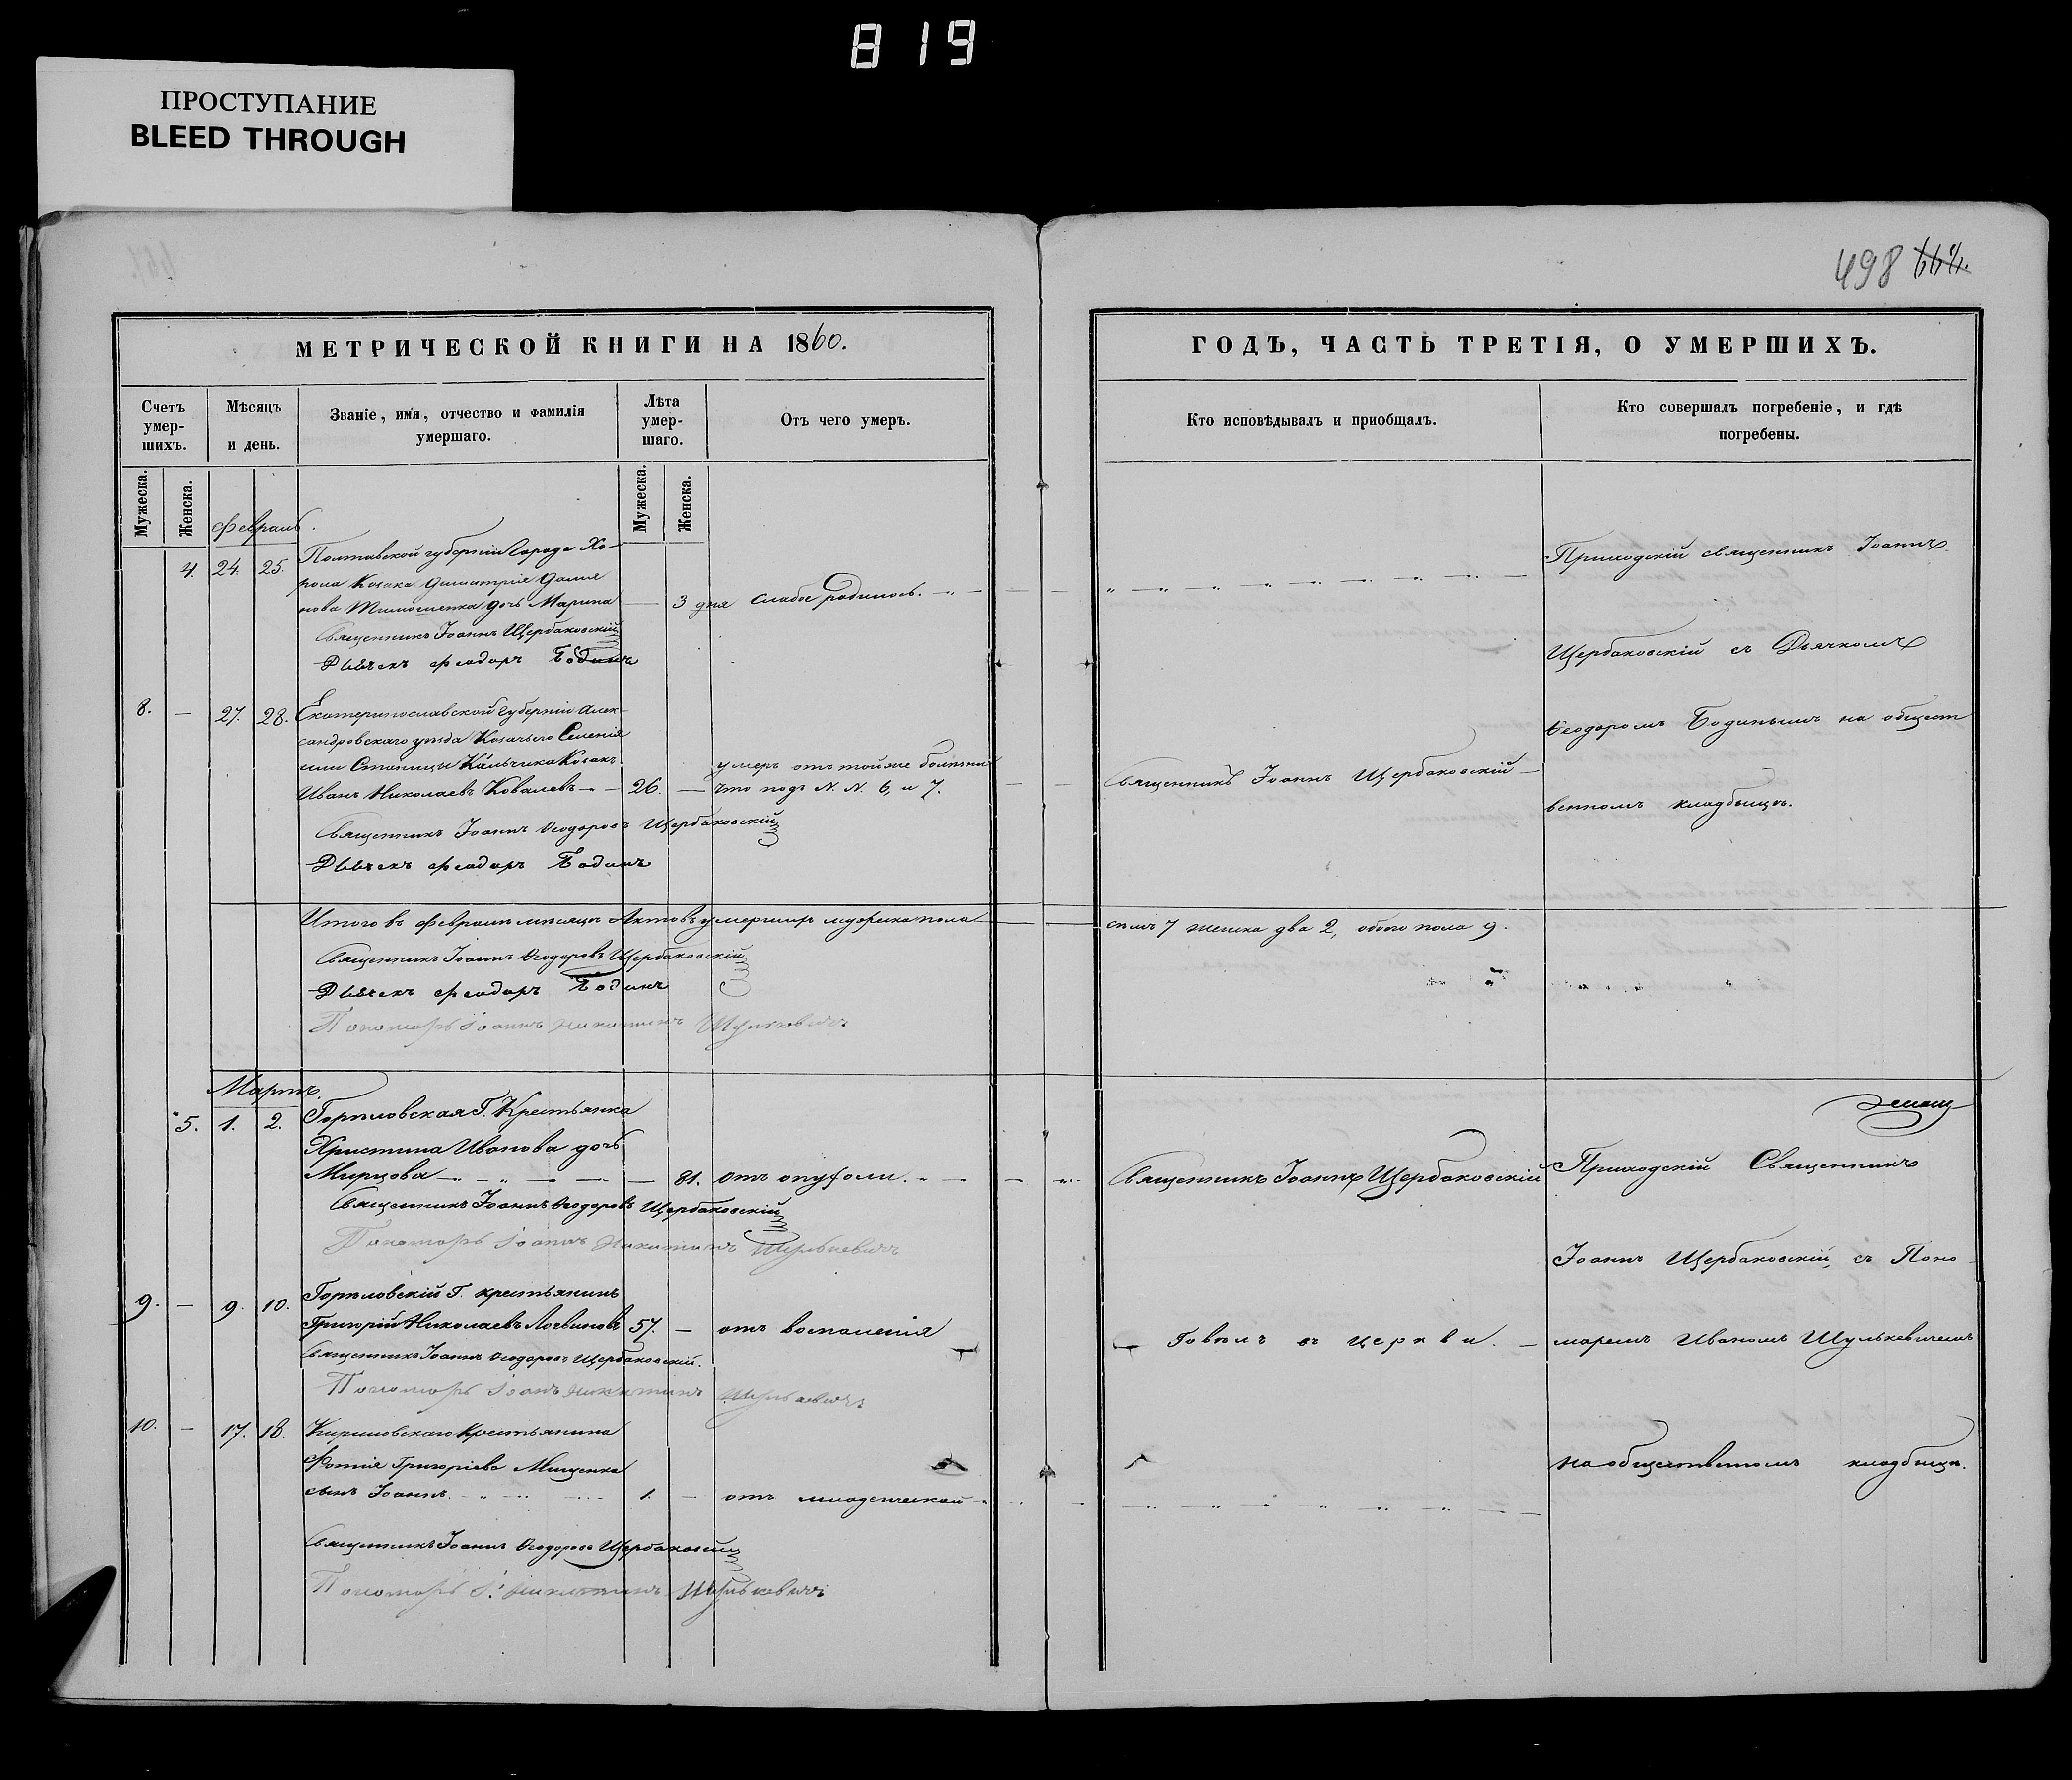 819
ПРОСТУПАНИЕ
BLEED THROUGH
498
МЕТРИЧЕСКОЙ КНИГИ НА 1860.
ГОДЪ, ЧАСТЬ ТРЕТІЯ, О УМЕРШИХЪ.
Счетъ умер-шихъ.
Мѣсяцъ и день.
Званіе, имя, отчество и фамилія умершаго.
Лѣта умер-шаго.
Отъ чего умеръ.
Кто исповѣдывалъ и приобщалъ.
Кто совершалъ погребеніе, и гдѣ погребены.
Мужеска.
Женска.
Мужеска.
Женска.
Февраль.
4. 24. 25. Полтавской губерніи Города Хо-
рола Козака Димитрія
дочь Марина — 3 дня слабое родилось.
Священникъ Іоаннъ Щербаковскій
Дьячекъ Феодоръ Бодинъ
8. — 27. 28. Екатеринославской губерніи Алек-
сандровскаго уѣзда Козачьего Селенія
или Станицы Кальчика Козакъ
Иванъ Николаевъ Ковалевъ — 26. —
умеръ отъ той же болѣзни
что подъ N. N. 6, и 7.
Священникъ Іоаннъ Ѳеодоровъ Щербаковскій
Дьячекъ Феодоръ Бодинъ
Священникъ Іоаннъ Щербаковскій
Приходскій священникъ Іоаннъ
Щербаковскій съ Дьячкомъ
Ѳеодоромъ Бодинымъ на общест
венномъ кладбищѣ.
Итого въ Февралѣ мѣсяцѣ Актовъ умершихъ мужеска пола
семь 7 женска два 2, обоего пола 9.
Священникъ Іоаннъ Ѳеодоровъ Щербаковскій
Дьячекъ Феодоръ Бодинъ
Пономарь Іоаннъ Никитинъ Шулькевичъ
Мартъ.
5. 1. 2. Горѣловская Г. Крестьянка
Христина Иванова дочь
Мирцова — 81. отъ опухоли.
Священникъ Іоаннъ Ѳеодоровъ Щербаковскій
Пономарь Іоаннъ Никитинъ Шулькевичъ
Священникъ Іоаннъ Щербаковскій
9. — 9. 10. Горѣловскій Г. крестьянинъ
Григорій Николаевъ Логвиновъ 57. — отъ воспаленія
Священникъ Іоаннъ Ѳеодоровъ Щербаковскій.
Пономарь Іоаннъ Никитинъ Шулькевичъ
Говѣлъ въ церкви.
10. — 17. 18. Крестьянина
Фотія Григоріева Мищенка
сынъ Іоаннъ. 1. — отъ младенческой
Священникъ Іоаннъ Ѳеодоровъ Щербаковскій
Пономарь І. Никитинъ Шулькевичъ
Приходскій Священникъ
Іоаннъ Щербаковскій, съ Поно-
маремъ Иваномъ Шулькевичемъ
на общественномъ кладбищѣ.